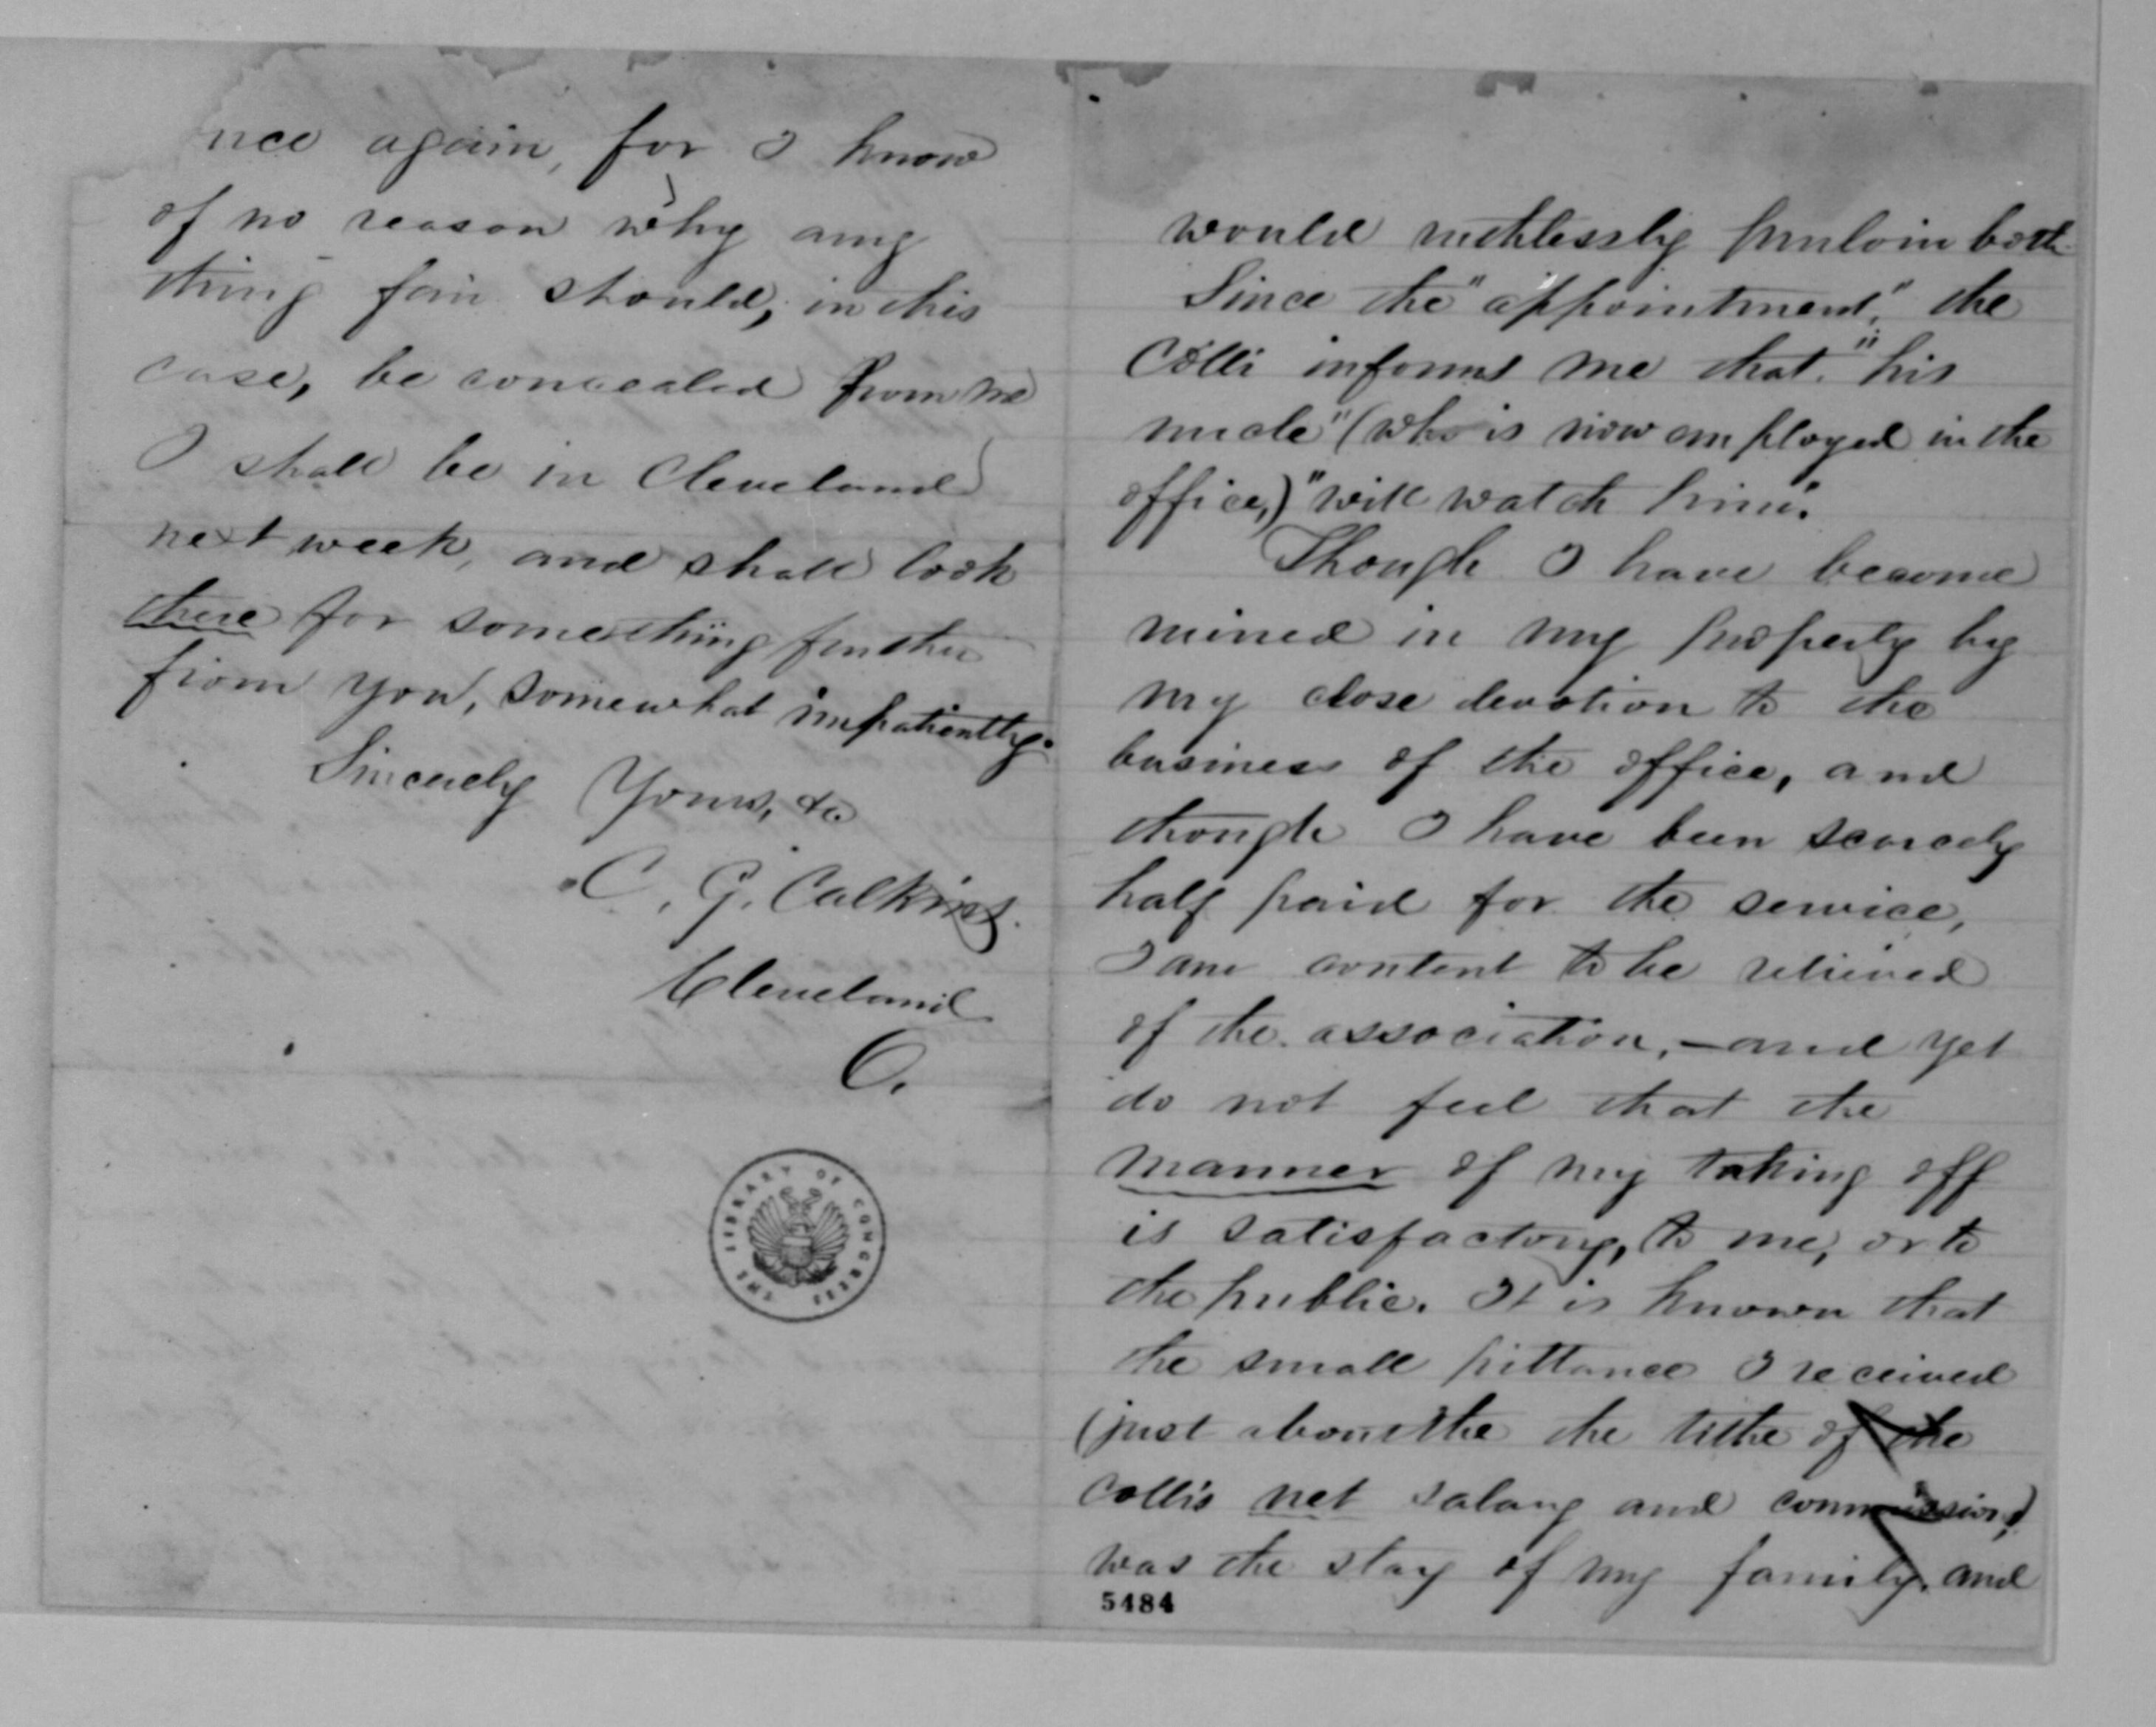 nce again, for I know
of no reason why any
thing fair should, in this
case, be concealed from me
I shall be in Cleveland
next week, and shall look
there for something further
from you, somewhat impatiently.
Sincerely Yours, &c
C. G. Calkins.
Cleveland
O.
THE LIBRARY OF CONGRESS
would ruthlessly purloin both.
Since the "appointment," the
Colli informs me that "his
uncle" (who is now employed in the
office,) "will watch him."
Though I have become
ruined in my property by
my close devotion to the
business of the office, and
though I have been scarcely
half paid for the service,
I am content to be relieved
of the association, — and yet
do not feel that the
manner of my taking off
is satisfactory, to me, or to
the public. It is known that
the small pittance I received
(just about the the tithe of the
colli's net salary and commissions)
was the stay of my family, and
5484